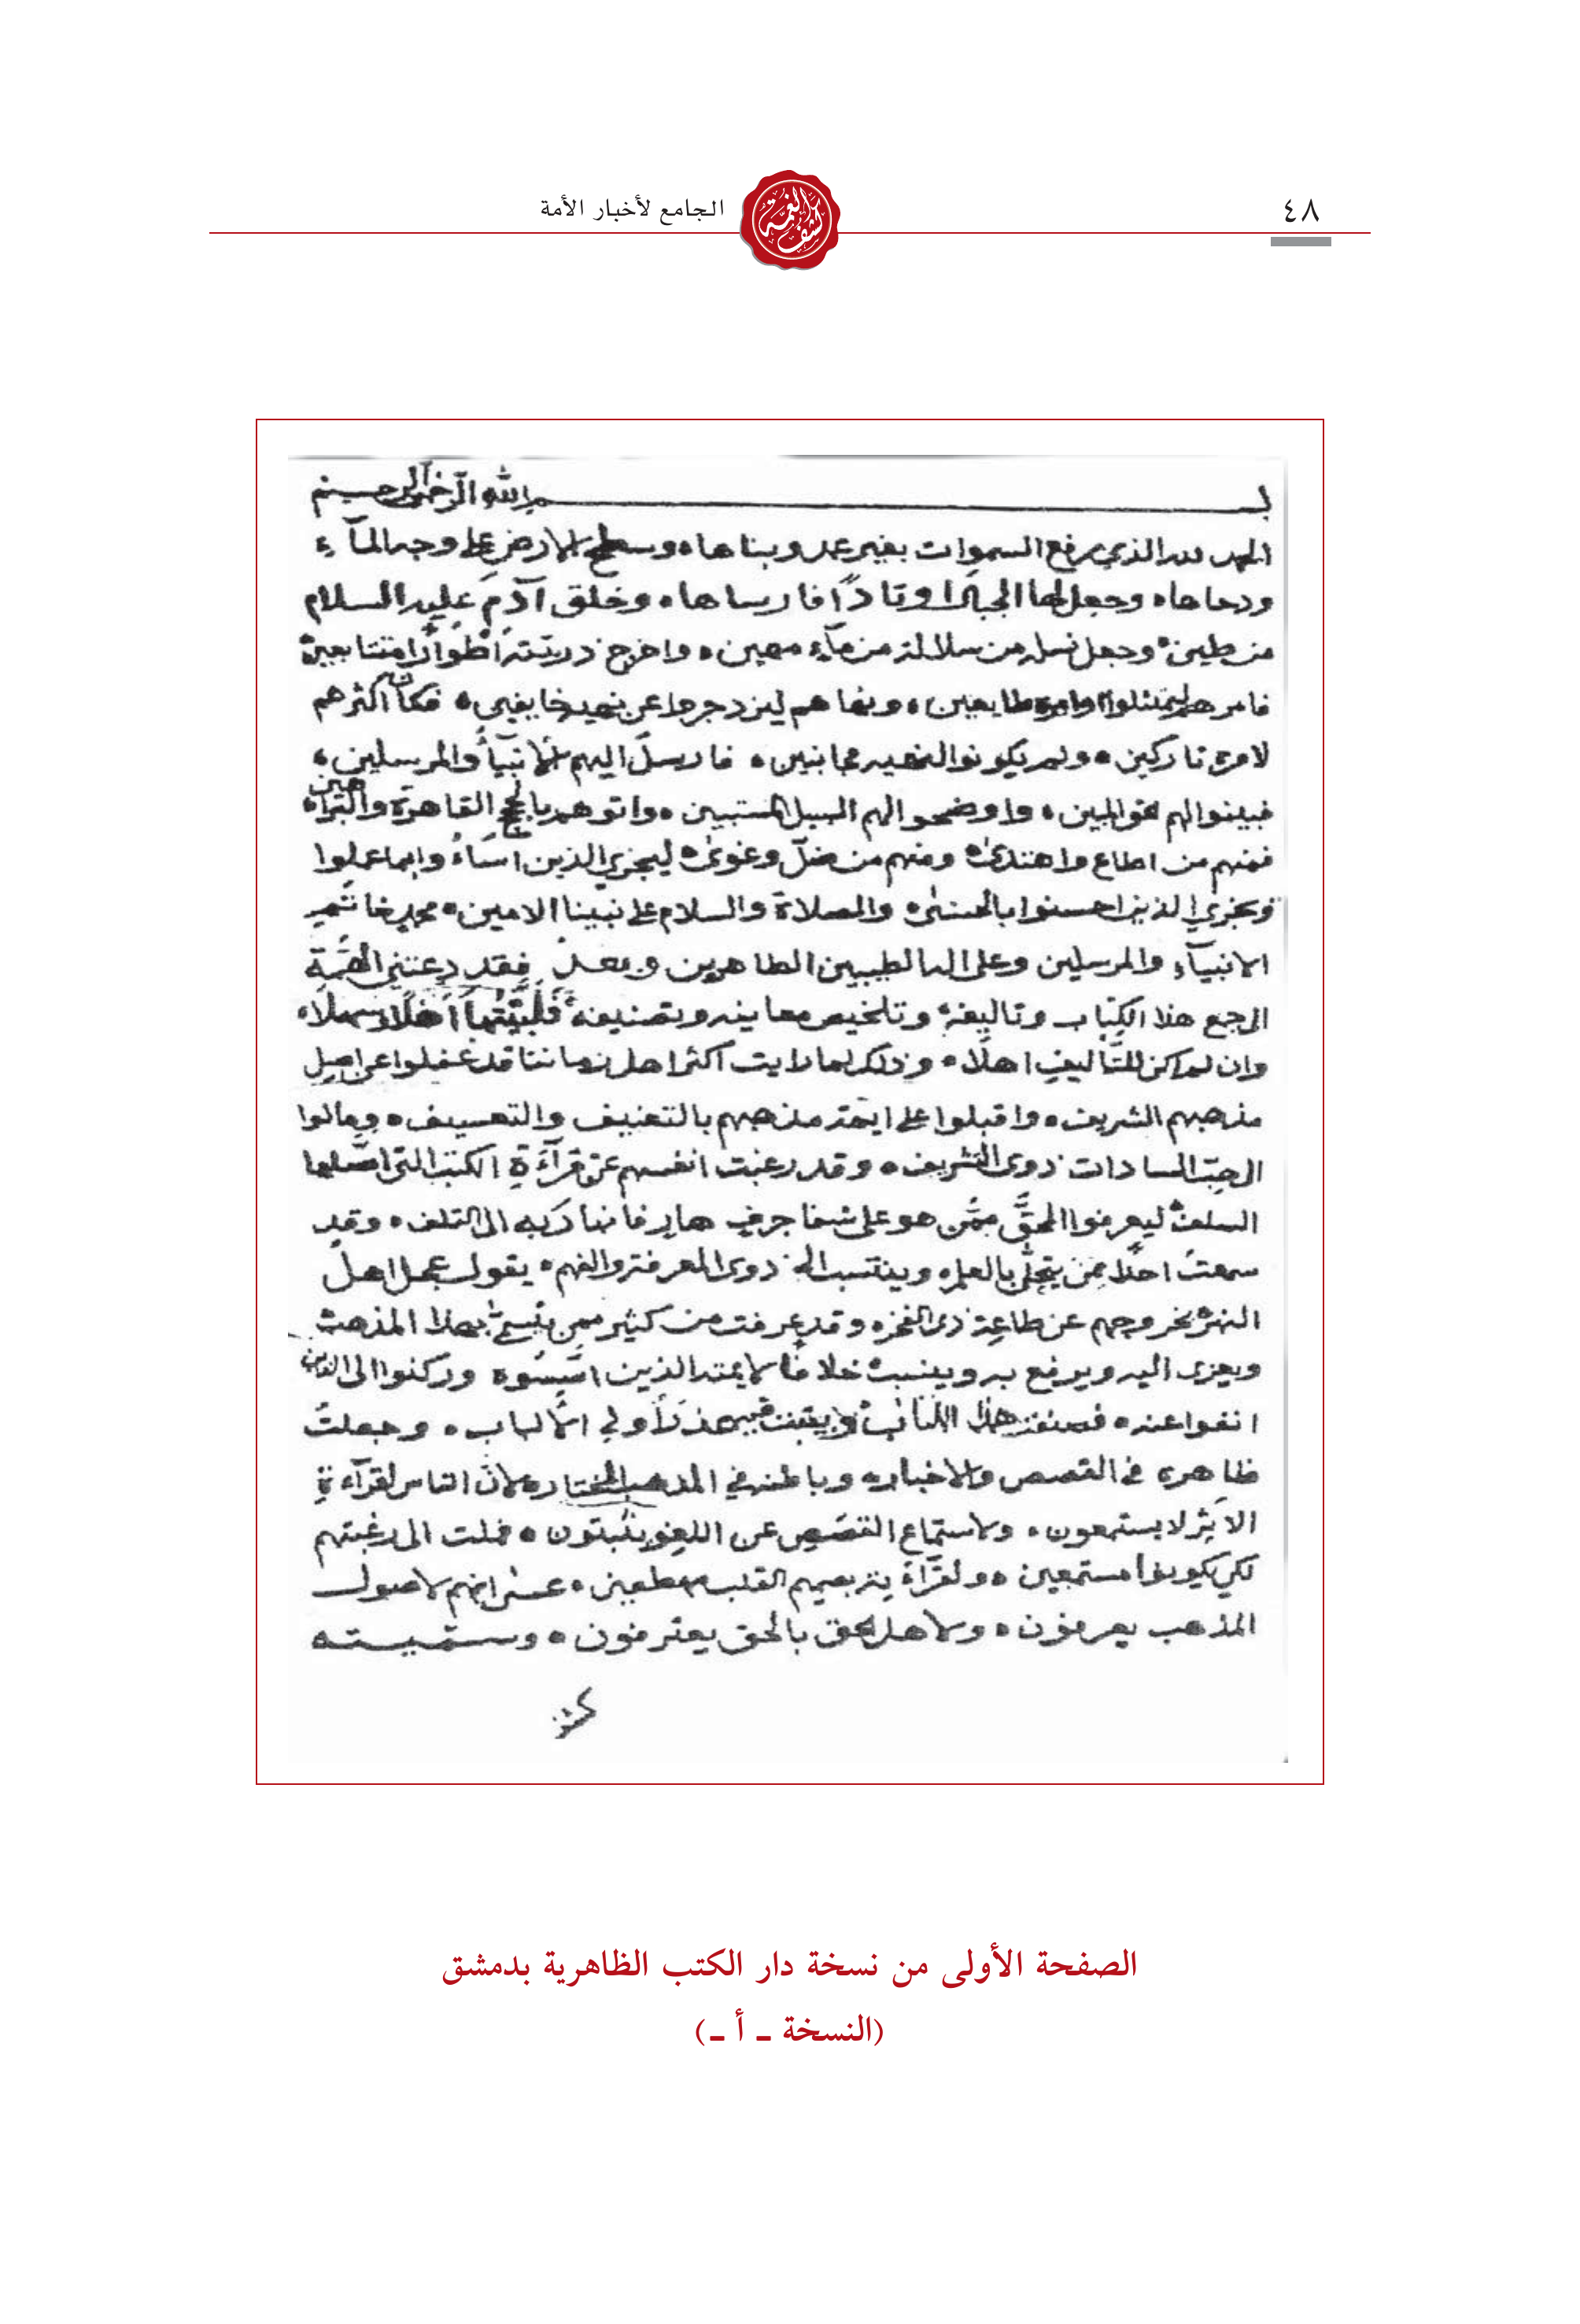 ٤٨
كشف الغمة
الجامع لأخبار الأمة
بسم الله الرحمن الرحيم
الحمد لله الذي رفع السموات بغير عمد وبناها وسطح الارض على وجه المآء
ودحاها وجعل لها الجبال اوتادًا فارساها وخلق آدم عليه السلام
من طين وجعل نسله من سلالة من مآء مهين واخرج ذريته اطوارًا متتابعين
فامرهم ليمتثلوا اوامره طايعين ونهاهم لينزدجروا عن نهيه خايفين فكان اكثرهم
لامره تاركين ولم يكونوا لنهيه مجانبين فارسل اليهم الانبيآء والمرسلين
فبينوا لهم واوضحوا لهم السبيل المستبين واتوهم بالحجج القاهرة والبراهين
فمنهم من اطاع واهتدى ومنهم من ضل وغوى ليجزي الذين اساءُوا بما عملوا
ويجزي الذين احسنوا بالحسنى والصلاة والسلام على نبينا الامين محمد خاتم
الانبيآء والمرسلين وعلى اله الطيبين الطاهرين وبعد فقد دعتني الهمة
الى جمع هذا الكتاب وتاليفه وتلخيص معانيه وتصنيفه فلبيتها اهلًا وسهلًا
وان لم اكن للتأليف اهلًا وذلك لما رايت اكثر اهل زماننا قد غفلوا عن اصل
مذهبهم الشريف واقبلوا على ايمة مذهبهم بالتعنيف والتعسيف ومالوا
الى حب السادات ذوى التشريف وقد رغبت انفسهم عن قرآءة الكتب التي اصلها
السلف ليعرفوا المحق ممن هو على شفا جرف هار فانهار به الى التلف وقد
سمعت احدًا ممن يتحلى بالعلم وينتسب الى ذوى المعرفة والفهم يقول بجهل اهل
النهر بخروجهم عن طاعة ذى الفخر وقد عرفت من كثير ممن يتسمى بهذا المذهب
ويعزى اليه ويرفع به وينسب خلافًا لايمته الذين اسسوه وركنوا الى الذين
انفوا عنه فصنفت هذا الكتاب لأولي الألباب وجعلت
ظاهره في القصص والاخبار وباطنه في المذهب المختار لان الناس لقرآءة
الاثر لا يستمعون ولاستماع القصص عن اللغو ينصتون فملت الى رغبتهم
لكي يكونوا مستمعين ولقرآءته بصميم القلب مهطعين عسى انهم لاصول
المذهب يعرفون ولاهل الحق بالحق يعترفون وسميته
كشف
الصفحة الأولى من نسخة دار الكتب الظاهرية بدمشق
(النسخة ـ أ ـ)